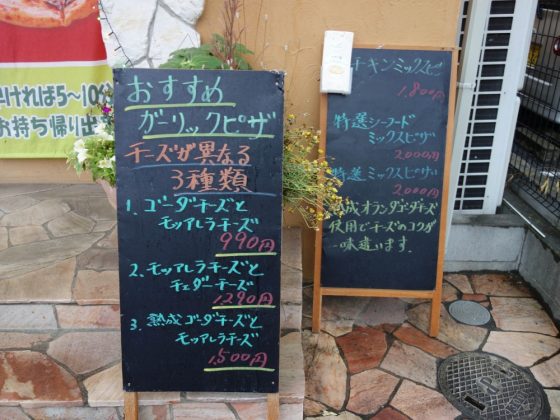 おすすめ
ガーリックピザ
チーズが異なる
3種類
1. ゴーダチーズと
モッアレラチーズ
990円
2. モッアレラチーズと
チェダーチーズ
1290円
3. 熟成ゴーダチーズと
モッアレラチーズ
1,500円
チキンミックスピ
1,800円
特選シーフード
ミックスピザ
2000円
特選ミックスピザ
2000円
熟成オランダゴーダチーズ
使用でチーズのコクが
一味違います.
ければ5〜10
お持ち帰り出